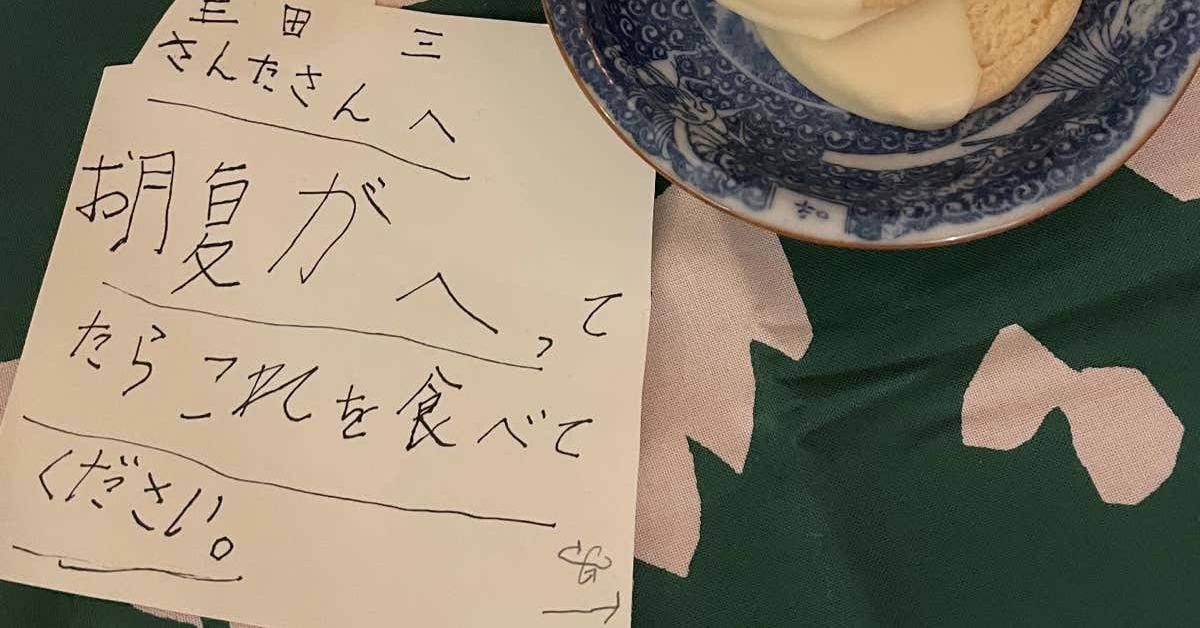 田 三
さんたさんへ
お腹がへって
たらこれを食べて
ください。